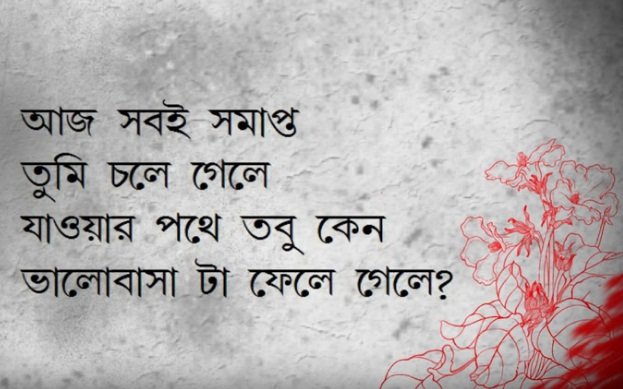 আজ সবই সমাপ্ত
তুমি চলে গেলে
যাওয়ার পথে তবু কেন
ভালোবাসা টা ফেলে গেলে?